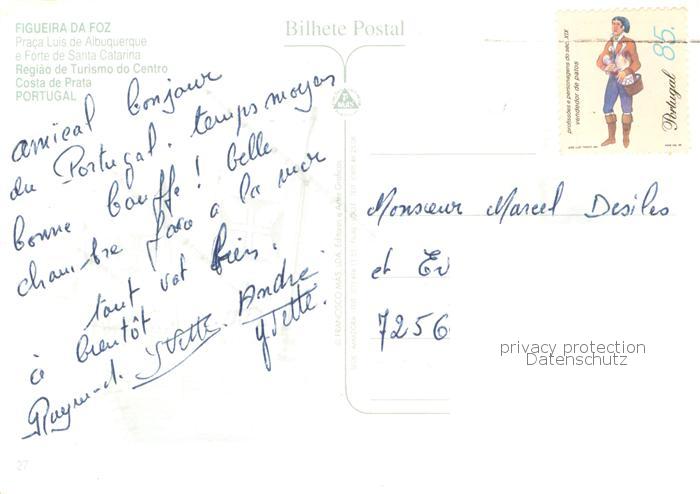 FIGUEIRA DA FOZ
Praça Luis de Albuquerque
e Forte de Santa Catarina
Região de Turismo do Centro
Costa de Prata
PORTUGAL
Bilhete Postal
profissões e personagens do séc. XIX
vendedor de patos
Portugal
85.
amical bonjour
du Portugal. temps moyen
bonne bouffe! belle
chambre face à la mer
tout vat bien.
à bientôt
Raymond. Yvette. André.
Yvette.
Monsieur Marcel Desiles
et Ev
7256
privacy protection
Datenschutz
27